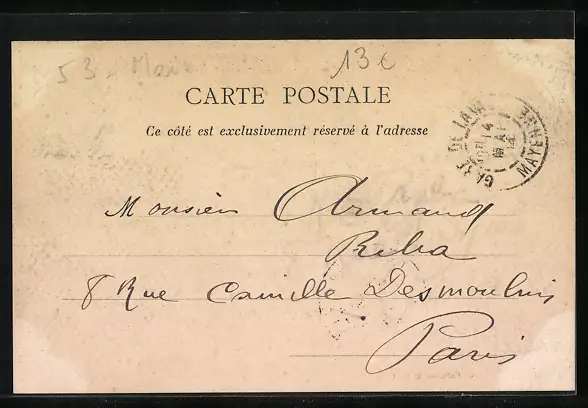 53 - Mari
13 €
CARTE POSTALE
Ce côté est exclusivement réservé à l'adresse
GARE DE LAVAL
14
MAI
MAYENNE
Monsieur Armand
Riba
8 Rue Camille Desmoulins
Paris